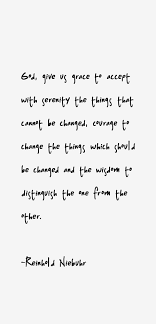 God, give us grace to accept
with serenity the things that
cannot be changed, courage to
change the things which should
be changed and the wisdom to
distinguish the one from the
other.
-Reinhold Niebuhr